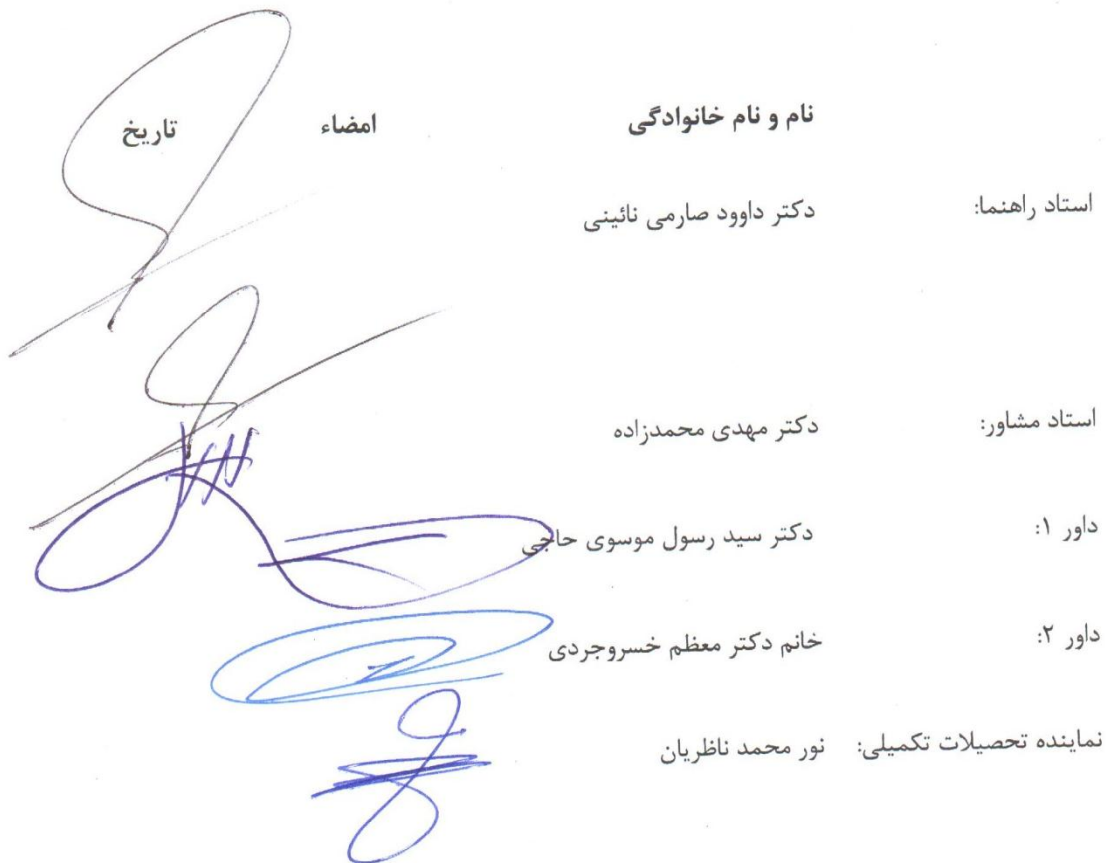 نام و نام خانوادگی امضاء تاریخ
استاد راهنما: دکتر داوود صارمی نائینی
استاد مشاور: دکتر مهدی محمدزاده
داور ۱: دکتر سید رسول موسوی حاجی
داور ۲: خانم دکتر معظم خسروجردی
نماینده تحصیلات تکمیلی: نور محمد ناظریان